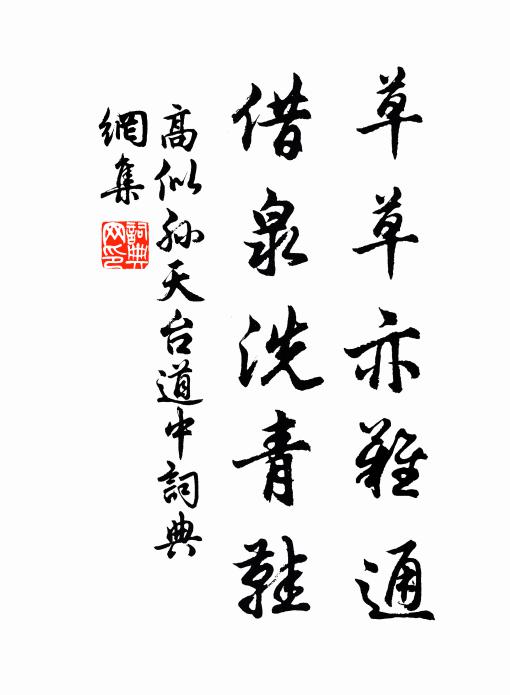 草草亦難通
借泉洗青鞋
高似孙天台道中詞典
網集
詞典
网印